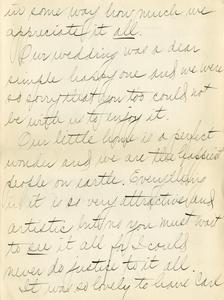 in some way how much we
appreciate it all.
Our wedding was a dear
simple happy one and we were
so sorry that you too could not
be with us to enjoy it.
Our little home is a perfect
wonder and we are the happiest
people on earth. Everything
in it is so very attractive and
artistic but you must wait
to see it all for I could
never do justice to it all.
It was so lovely to have Carl